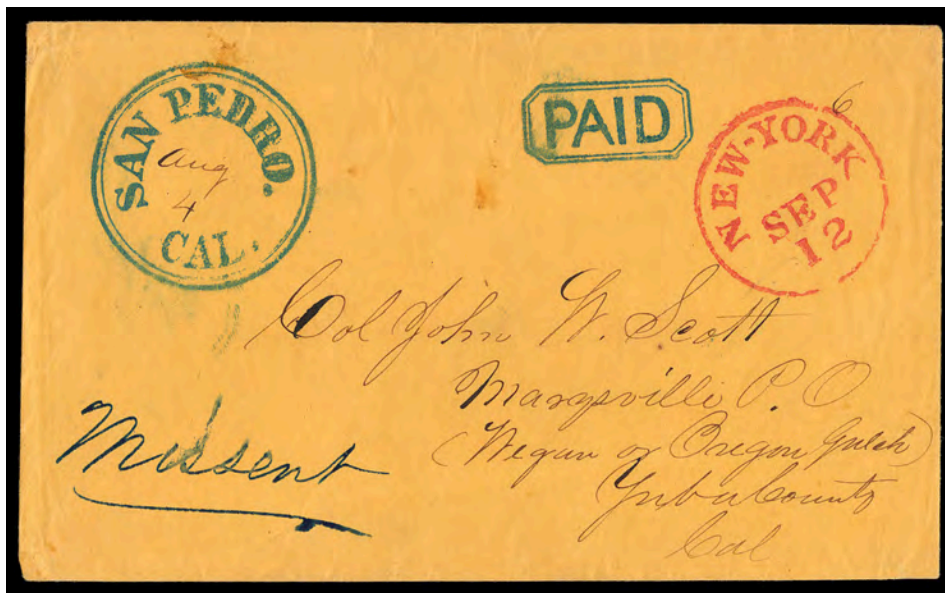 SAN PEDRO.
Aug
4
CAL.
PAID
6
NEW-YORK
SEP
12
Col John W. Scott
Marysville P. O
( or Oregon Gulch)
Yuba County
Cal
Missent